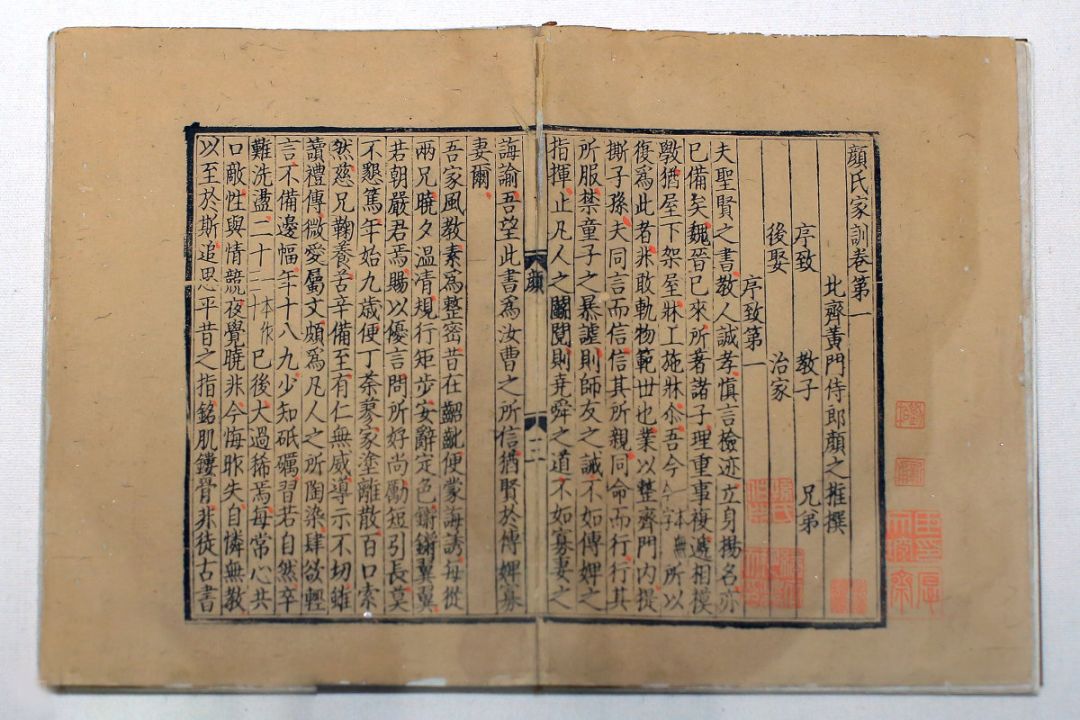 顔氏家訓卷第一
北齊黃門侍郎顔之推撰
序致 教子 兄弟
後娶 治家
序致第一
夫聖賢之書教人誠孝慎言檢迹立身揚名亦
已備矣魏晉已來所著諸子理重事複遞相模
斆猶屋下架屋牀上施牀尒吾今一本無今字所以
復爲此者非敢軌物範世也業以整齊門內提
撕子孫夫同言而信信其所親同命而行行其
所服禁童子之暴謔則師友之誡不如傅婢之
指揮止凡人之鬪鬩則堯舜之道不如寡妻之
顔
誨諭吾望此書爲汝曹之所信猶賢於傅婢寡
妻爾
吾家風教素爲整密昔在齠齔便蒙誨誘每從
兩兄曉夕温凊規行矩步安辭定色鏘鏘翼翼
若朝嚴君焉賜以優言問所好尚勵短引長莫
不懇篤年始九歲便丁荼蓼家塗離散百口索
然慈兄鞠養苦辛備至有仁無威導示不切雖
讀禮傳微愛屬文頗爲凡人之所陶染肆欲輕
言不備邊幅年十八九少知砥礪習若自然卒
難洗盪二十一本作三十已後大過稀焉每常心共
口敵性與情競夜覺曉非今悔昨失自憐無教
以至於斯追思平昔之指銘肌鏤骨非徒古書